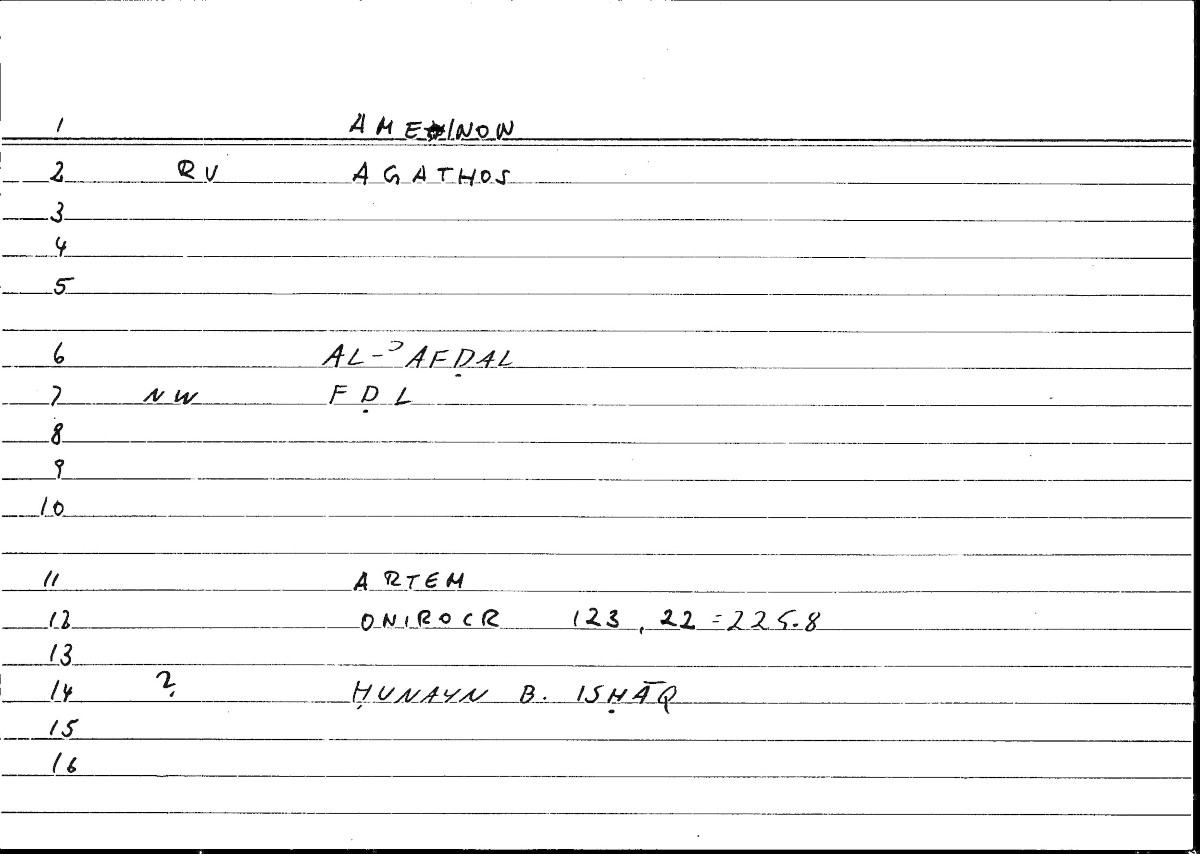 1 AMEINON
2 RV AGATHOS
3
4
5
6 AL-ʾAFḌAL
7 NW FḌL
8
9
10
11 ARTEM
12 ONIROCR 123, 22 = 225.8
13
14 ? ḤUNAYN B. ISḤĀQ
15
16